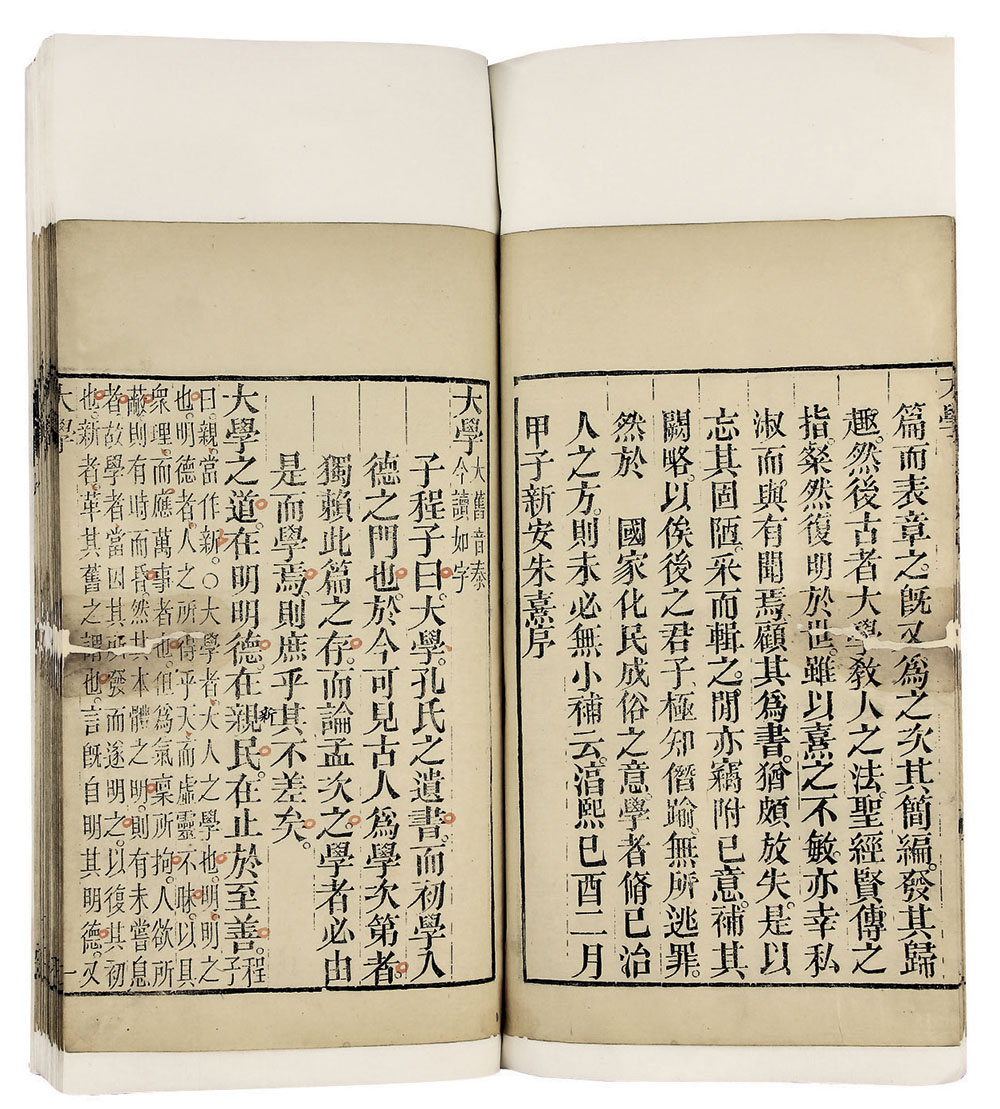 大學
篇而表章之。旣又爲之次其簡編。發其歸
趣。然後古者大學敎人之法。聖經賢傳之
指。粲然復明於世。雖以熹之不敏。亦幸私
淑而與有聞焉。顧其爲書。猶頗放失。是以
忘其固陋。采而輯之。閒亦竊附己意。補其
闕略。以俟後之君子。極知僭踰。無所逃罪。
然於　國家化民成俗之意。學者脩己治
人之方。則未必無小補云。淳熙己酉二月
甲子新安朱熹序
大學 大舊音泰
今讀如字
子程子曰。大學。孔氏之遺書。而初學入
德之門也。於今可見古人爲學次第者。
獨賴此篇之存。而論孟次之。學者必由
是而學焉。則庶乎其不差矣。
大學之道。在明明德。在親民。在止於至善。程子
新
曰。親。當作新。○大學者。大人之學也。明。明之
也。明德者。人之所得乎天。而虛靈不昧。以具
衆理。而應萬事者也。但爲氣稟所拘。人欲所
蔽。則有時而昏。然其本體之明。則有未嘗息
者。故學者當因其所發而遂明之。以復其初
也。新者。革其舊之謂也。言旣自明其明德。又
大學
一